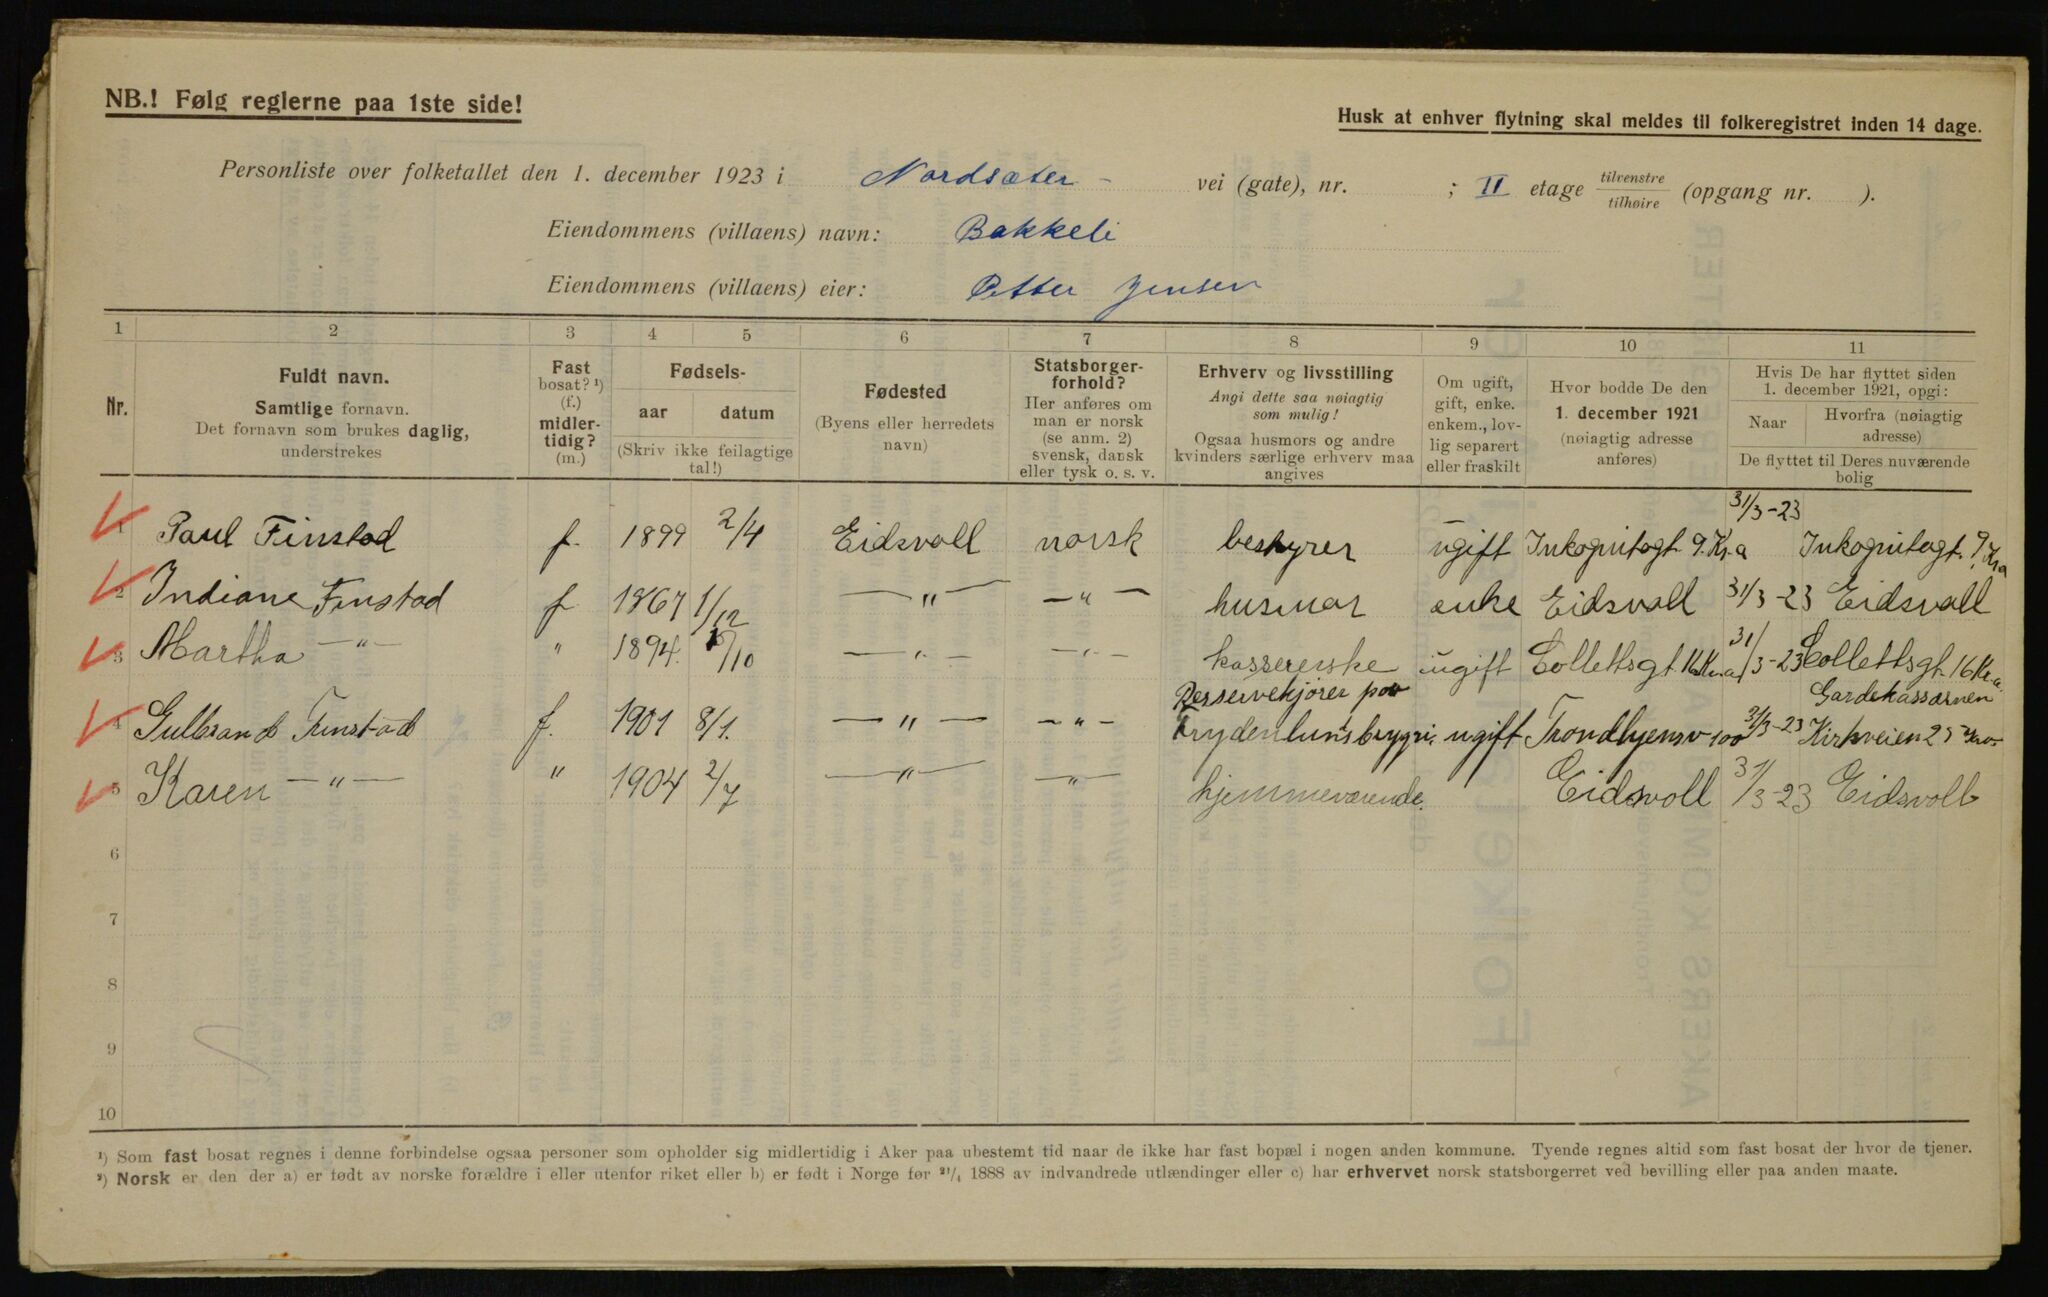 NB.! Følg reglerne paa 1ste side!
Husk at enhver flytning skal meldes til folkeregistret inden 14 dage.
Personliste over folketallet den 1. december 1923 i Nordsæter - vei (gate), nr. ; II etage tilvenstre tilhøire (opgang nr. ).
Eiendommens (villaens) navn: Bakkeli
Eiendommens (villaens) eier: Petter Jensen
1 2 3 4 5 6 7 8 9 10 11
Nr.
Fuldt navn.
Samtlige fornavn.
Det fornavn som brukes daglig,
understrekes
Fast
bosat? ¹)
(f.)
midler-
tidig?
(m.)
Fødsels-
aar datum
(Skriv ikke feilagtige
tal!)
Fødested
(Byens eller herredets
navn)
Statsborger-
forhold?
Her anføres om
man er norsk
(se anm. 2)
svensk, dansk
eller tysk o. s. v.
Erhverv og livsstilling
Angi dette saa nøiagtig
som mulig!
Ogsaa husmors og andre
kvinders særlige erhverv maa
angives
Om ugift,
gift, enke.
enkem., lov-
lig separert
eller fraskilt
Hvor bodde De den
1. december 1921
(nøiagtig adresse
anføres)
Hvis De har flyttet siden
1. december 1921, opgi:
Naar Hvorfra (nøiagtig
adresse)
De flyttet til Deres nuværende
bolig
31/3-23
1 Paul Finstad f. 1899 2/4 Eidsvoll norsk bestyrer ugift Inkognitogt. 9. Kr.a Inkognitogt. 9, Kr.a
2 Indiane Finstad f 1867 1/12 — " — — " — husmor enke Eidsvoll 31/3-23 Eidsvoll
3 Martha — " — " 1894. /10 — " — — " — kassererske ugift Collettsgt. 16 Kr.a 31/3-23 Collettsgt. 16 Kr.a.
Reservekjører paa Gardekassærnen
4 Gulbrand Finstad f. 1901 8/1. — " — — " — Frydenlunsbryggri. ugift Trondhjemsv 100 31/3-23 Kirkveien 23
5 Karen — " — " 1904 2/7 — " — — " — hjemmeværende. Eidsvoll 31/3-23 Eidsvoll
6
7
8
9
10
¹) Som fast bosat regnes i denne forbindelse ogsaa personer som opholder sig midlertidig i Aker paa ubestemt tid naar de ikke har fast bopæl i nogen anden kommune. Tyende regnes altid som fast bosat der hvor de tjener.
²) Norsk er den der a) er født av norske forældre i eller utenfor riket eller b) er født i Norge før ²¹/₄ 1888 av indvandrede utlændinger eller c) har erhvervet norsk statsborgerret ved bevilling eller paa anden maate.